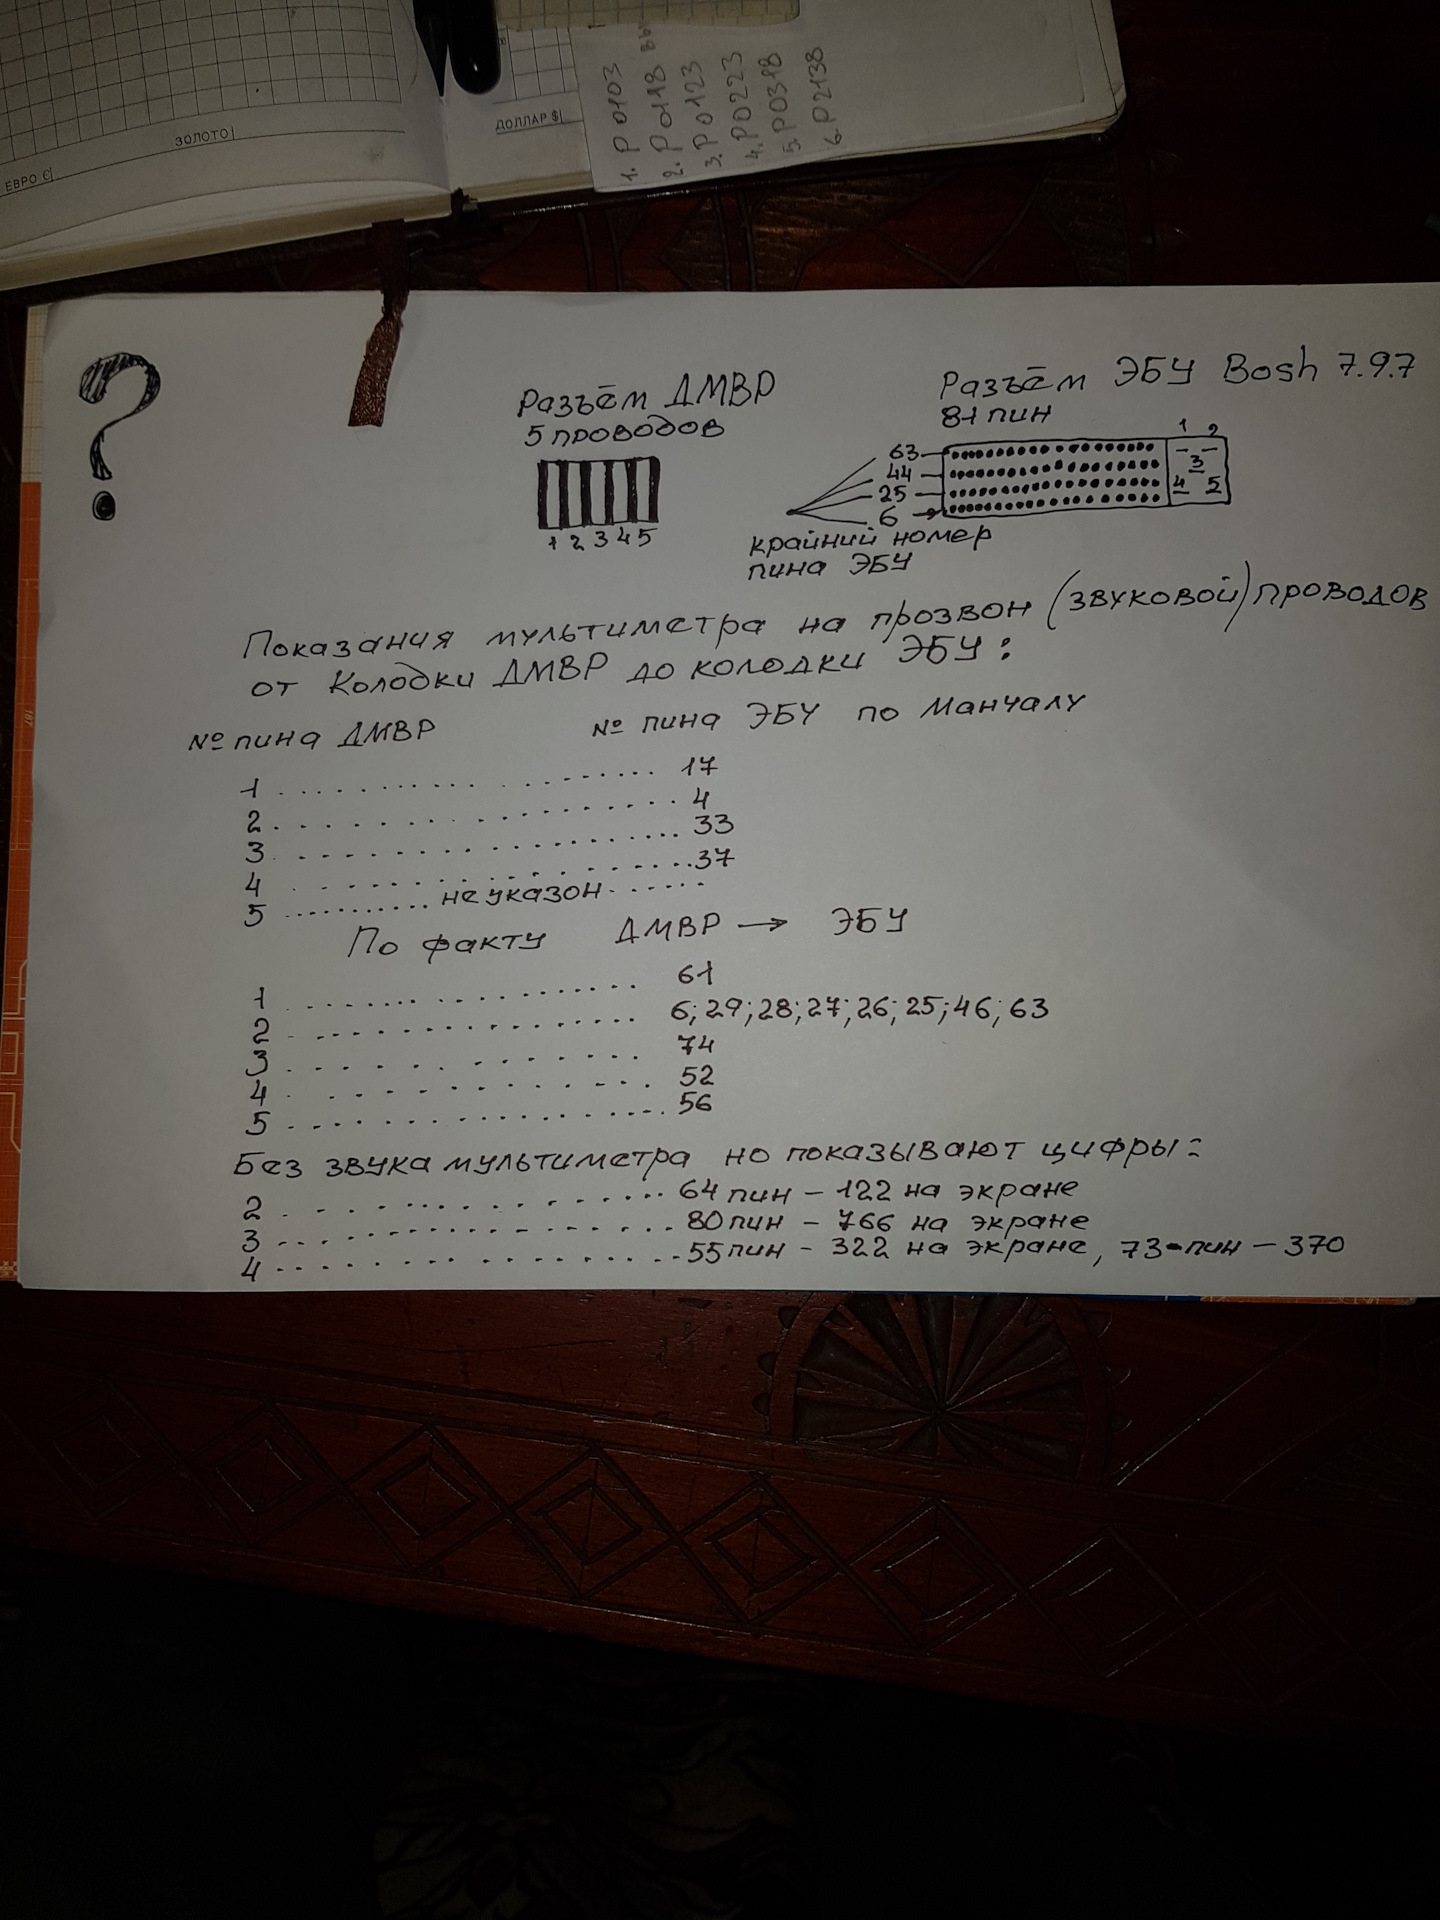 ЕВРО €
ЗОЛОТО
ДОЛЛАР $
1. P0103
2. P0118 вы
3. P0123
4. P0223
5. P0318
6. P2138
?
Разъём ДМВР
5 проводов
1 2 3 4 5
Разъём ЭБУ Bosh 7.9.7
81 пин
63
44
25
6
1 2
3
4 5
крайний номер
пина ЭБУ
Показания мультиметра на прозвон (звуковой) проводов
от Колодки ДМВР до колодки ЭБУ:
№ пина ДМВР № пина ЭБУ по Мануалу
1 .................. 17
2 .................. 4
3 .................. 33
4 .................. 37
5 .......... не указон ......
По факту ДМВР → ЭБУ
1 .................. 61
2 .................. 6; 29; 28; 27; 26; 25; 46; 63
3 .................. 74
4 .................. 52
5 .................. 56
Без звука мультиметра но показывают цифры:
2 .................. 64 пин - 122 на экране
3 .................. 80 пин - 766 на экране
4 .................. 55 пин - 322 на экране, 73-пин - 370
187